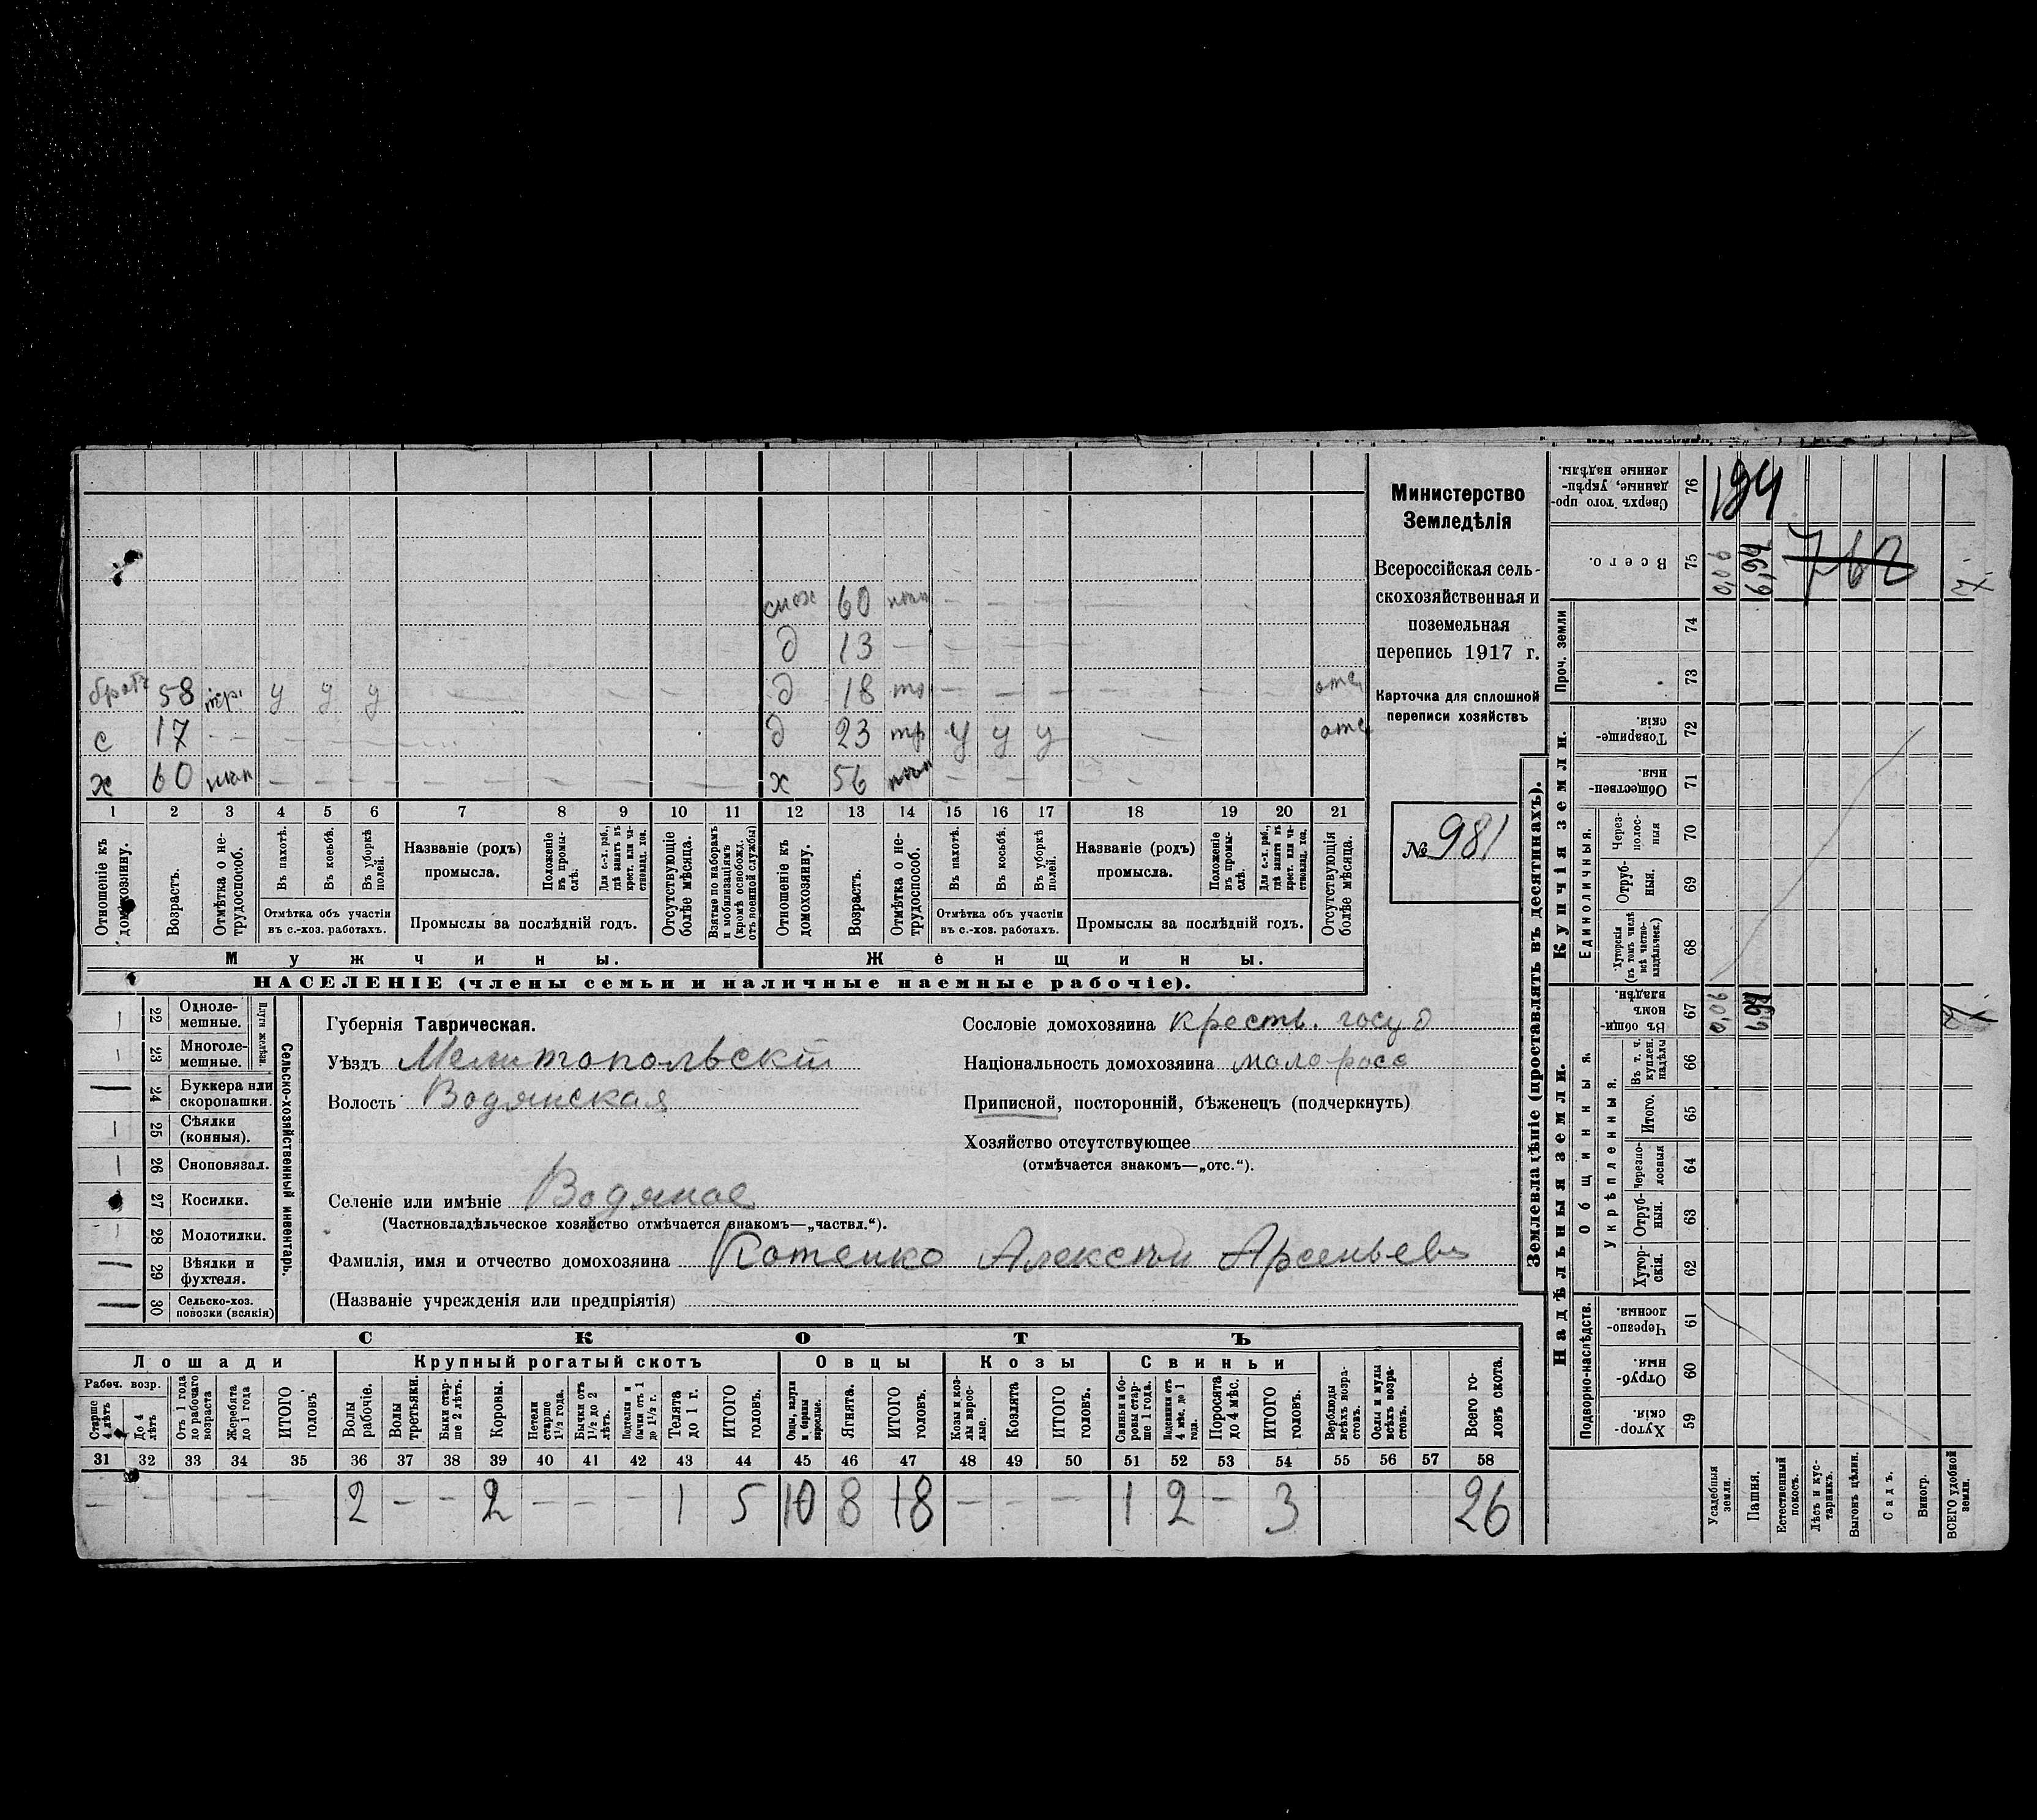 снох 60 поли — — —
д 13 — — — —
братъ 58 тр. у у у — — — — —
д 18 — — — — — — — отс
с 17 — — — — — — — —
д 23 тр у у у — отс
х 60 — — — — — — — —
х 56 — — — — —
1 2 3 4 5 6 7 8 9 10 11 12 13 14 15 16 17 18 19 20 21
Отношеніе къ домохозяину.
Возрастъ.
Отмѣтка о нетрудоспособ.
Въ пахотѣ.
Въ косьбѣ.
Въ уборкѣ полей.
Отмѣтка объ участіи
въ с.-хоз. работахъ.
Названіе (родъ)
промысла.
Положеніе въ промыслѣ.
Для с.-х. раб., гдѣ занятъ въ крест. или частновлад. хоз.
Промыслы за послѣдній годъ.
Отсутствующіе болѣе мѣсяца.
Взятые по наборамъ и мобилизаціямъ (кромѣ освобожд. отъ военной службы)
Отношеніе къ домохозяину.
Возрастъ.
Отмѣтка о нетрудоспособ.
Въ пахотѣ.
Въ косьбѣ.
Въ уборкѣ полей.
Отмѣтка объ участіи
въ с.-хоз. работахъ.
Названіе (родъ)
промысла.
Положеніе въ промыслѣ.
Для с.-х. раб., гдѣ занята въ крест. или частновлад. хоз.
Промыслы за послѣдній годъ.
Отсутствующія болѣе мѣсяца.
Мужчины.
Женщины.
НАСЕЛЕНІЕ (члены семьи и наличные наемные рабочіе).
Министерство
Земледѣлія
Всероссійская сель-
скохозяйственная и
поземельная
перепись 1917 г.
Карточка для сплошной
переписи хозяйствъ
№ 981
Сельско-хозяйственный инвентарь.
Плуги желѣзн.
— 22 Однолемешные.
— 23 Многолемешные.
— 24 Буккера или скоропашки.
— 25 Сѣялки (конныя).
— 26 Сноповязал.
27 Косилки.
— 28 Молотилки.
— 29 Вѣялки и фухтеля.
— 30 Сельско-хоз. повозки (всякія)
Губернія Таврическая.
Уѣздъ Мелитопольскій
Волость Водянская
Селеніе или имѣніе Водяное
(Частновладѣльческое хозяйство отмѣчается знакомъ—„частвл.“).
Фамилія, имя и отчество домохозяина Котенко Алексѣй Арсеньевъ
(Названіе учрежденія или предпріятія)
Сословіе домохозяина крестьв. госуд
Національность домохозяина малоросс
Приписной, посторонній, бѣженецъ (подчеркнуть)
Хозяйство отсутствующее
(отмѣчается знакомъ—„отс.“).
СКОТЪ
Лошади
Крупный рогатый скотъ
Овцы
Козы
Свиньи
Рабоч. возр.
Старше 4 лѣтъ
До 4 лѣтъ
Отъ 1 года до рабочаго возраста
Жеребята до 1 года
ИТОГО головъ
Волы рабочіе.
Волы третьяки.
Быки старше 2 лѣтъ.
Коровы.
Нетели старше 1½ года.
Бычки отъ 1½ до 2 лѣтъ.
Подтелки и бычки отъ 1 до 1½ г.
Телята до 1 г.
ИТОГО головъ.
Овцы, валухи и бараны взрослые.
Ягнята.
ИТОГО головъ.
Козы и козлы взрослые.
Козлята
ИТОГО головъ.
Свиньи и боровы старше 1 года.
Подсвинки отъ 4 мѣс. до 1 года.
Поросята до 4 мѣс.
ИТОГО головъ.
Верблюды всѣхъ возрастовъ.
Ослы и мулы всѣхъ возрастовъ.
Всего головъ скота.
31 32 33 34 35 36 37 38 39 40 41 42 43 44 45 46 47 48 49 50 51 52 53 54 55 56 57 58
— — — — — 2 — — 2 — — — 1 5 10 8 18 — — — 1 2 — 3 26
Землевладѣніе (проставлять въ десятинахъ).
Надѣльныя земли.
Купчія земли.
Проч. земли
Подворно-наслѣдств.
Общинныя.
Укрѣпленныя.
Единоличныя.
59 Хуторскія.
60 Отрубныя.
61 Черезполосныя.
62 Хуторскія.
63 Отрубныя.
64 Черезполосныя
65 Итого.
66 Въ т. ч. куплен. надѣлы
67 Въ общинномъ владѣн. 0,06
68 Хуторскія (въ томъ числѣ всѣ частновладѣльческ.)
69 Отрубныя.
70 Черезполосныя
71 Общественныя.
72 Товарищескія.
73
74
75 Всего. 0,06 6,94 762
76 Сверхъ того проданные, укрѣпленные надѣлы. 194
Усадебныя земли.
Пашня.
Естественный покосъ.
Лѣсъ и кустарникъ.
Выгонъ цѣлин.
Садъ.
Виногр.
ВСЕГО удобной земли.